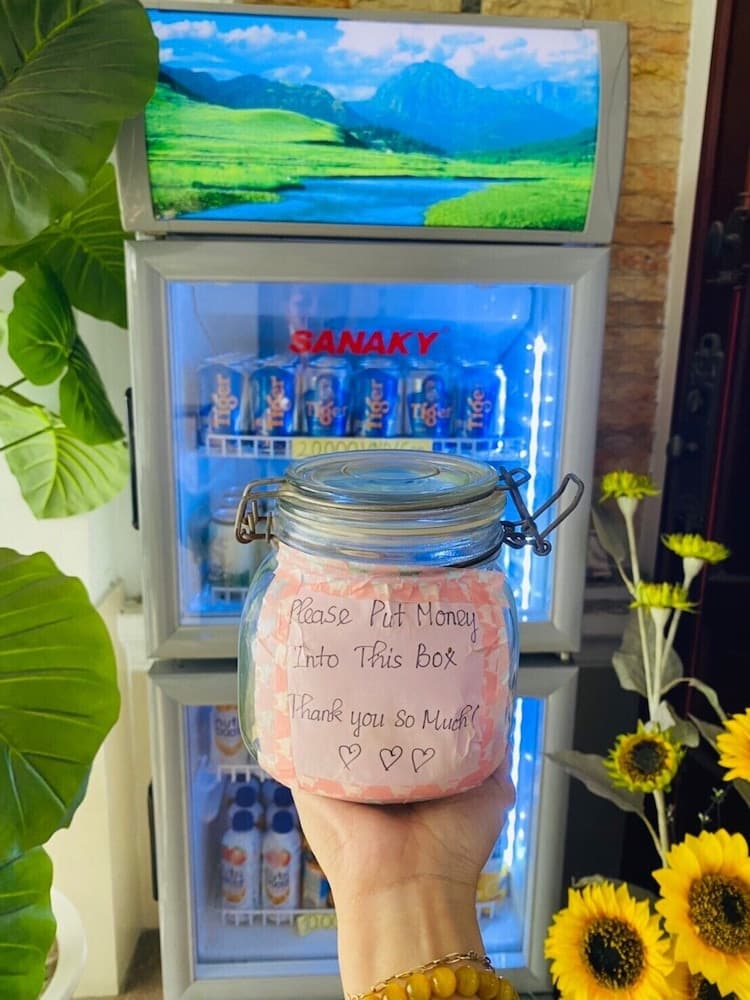 SANAKY
Tiger Tiger Tiger Tiger Tiger Tiger
Please Put Money
Into This Box
Thank you So Much!